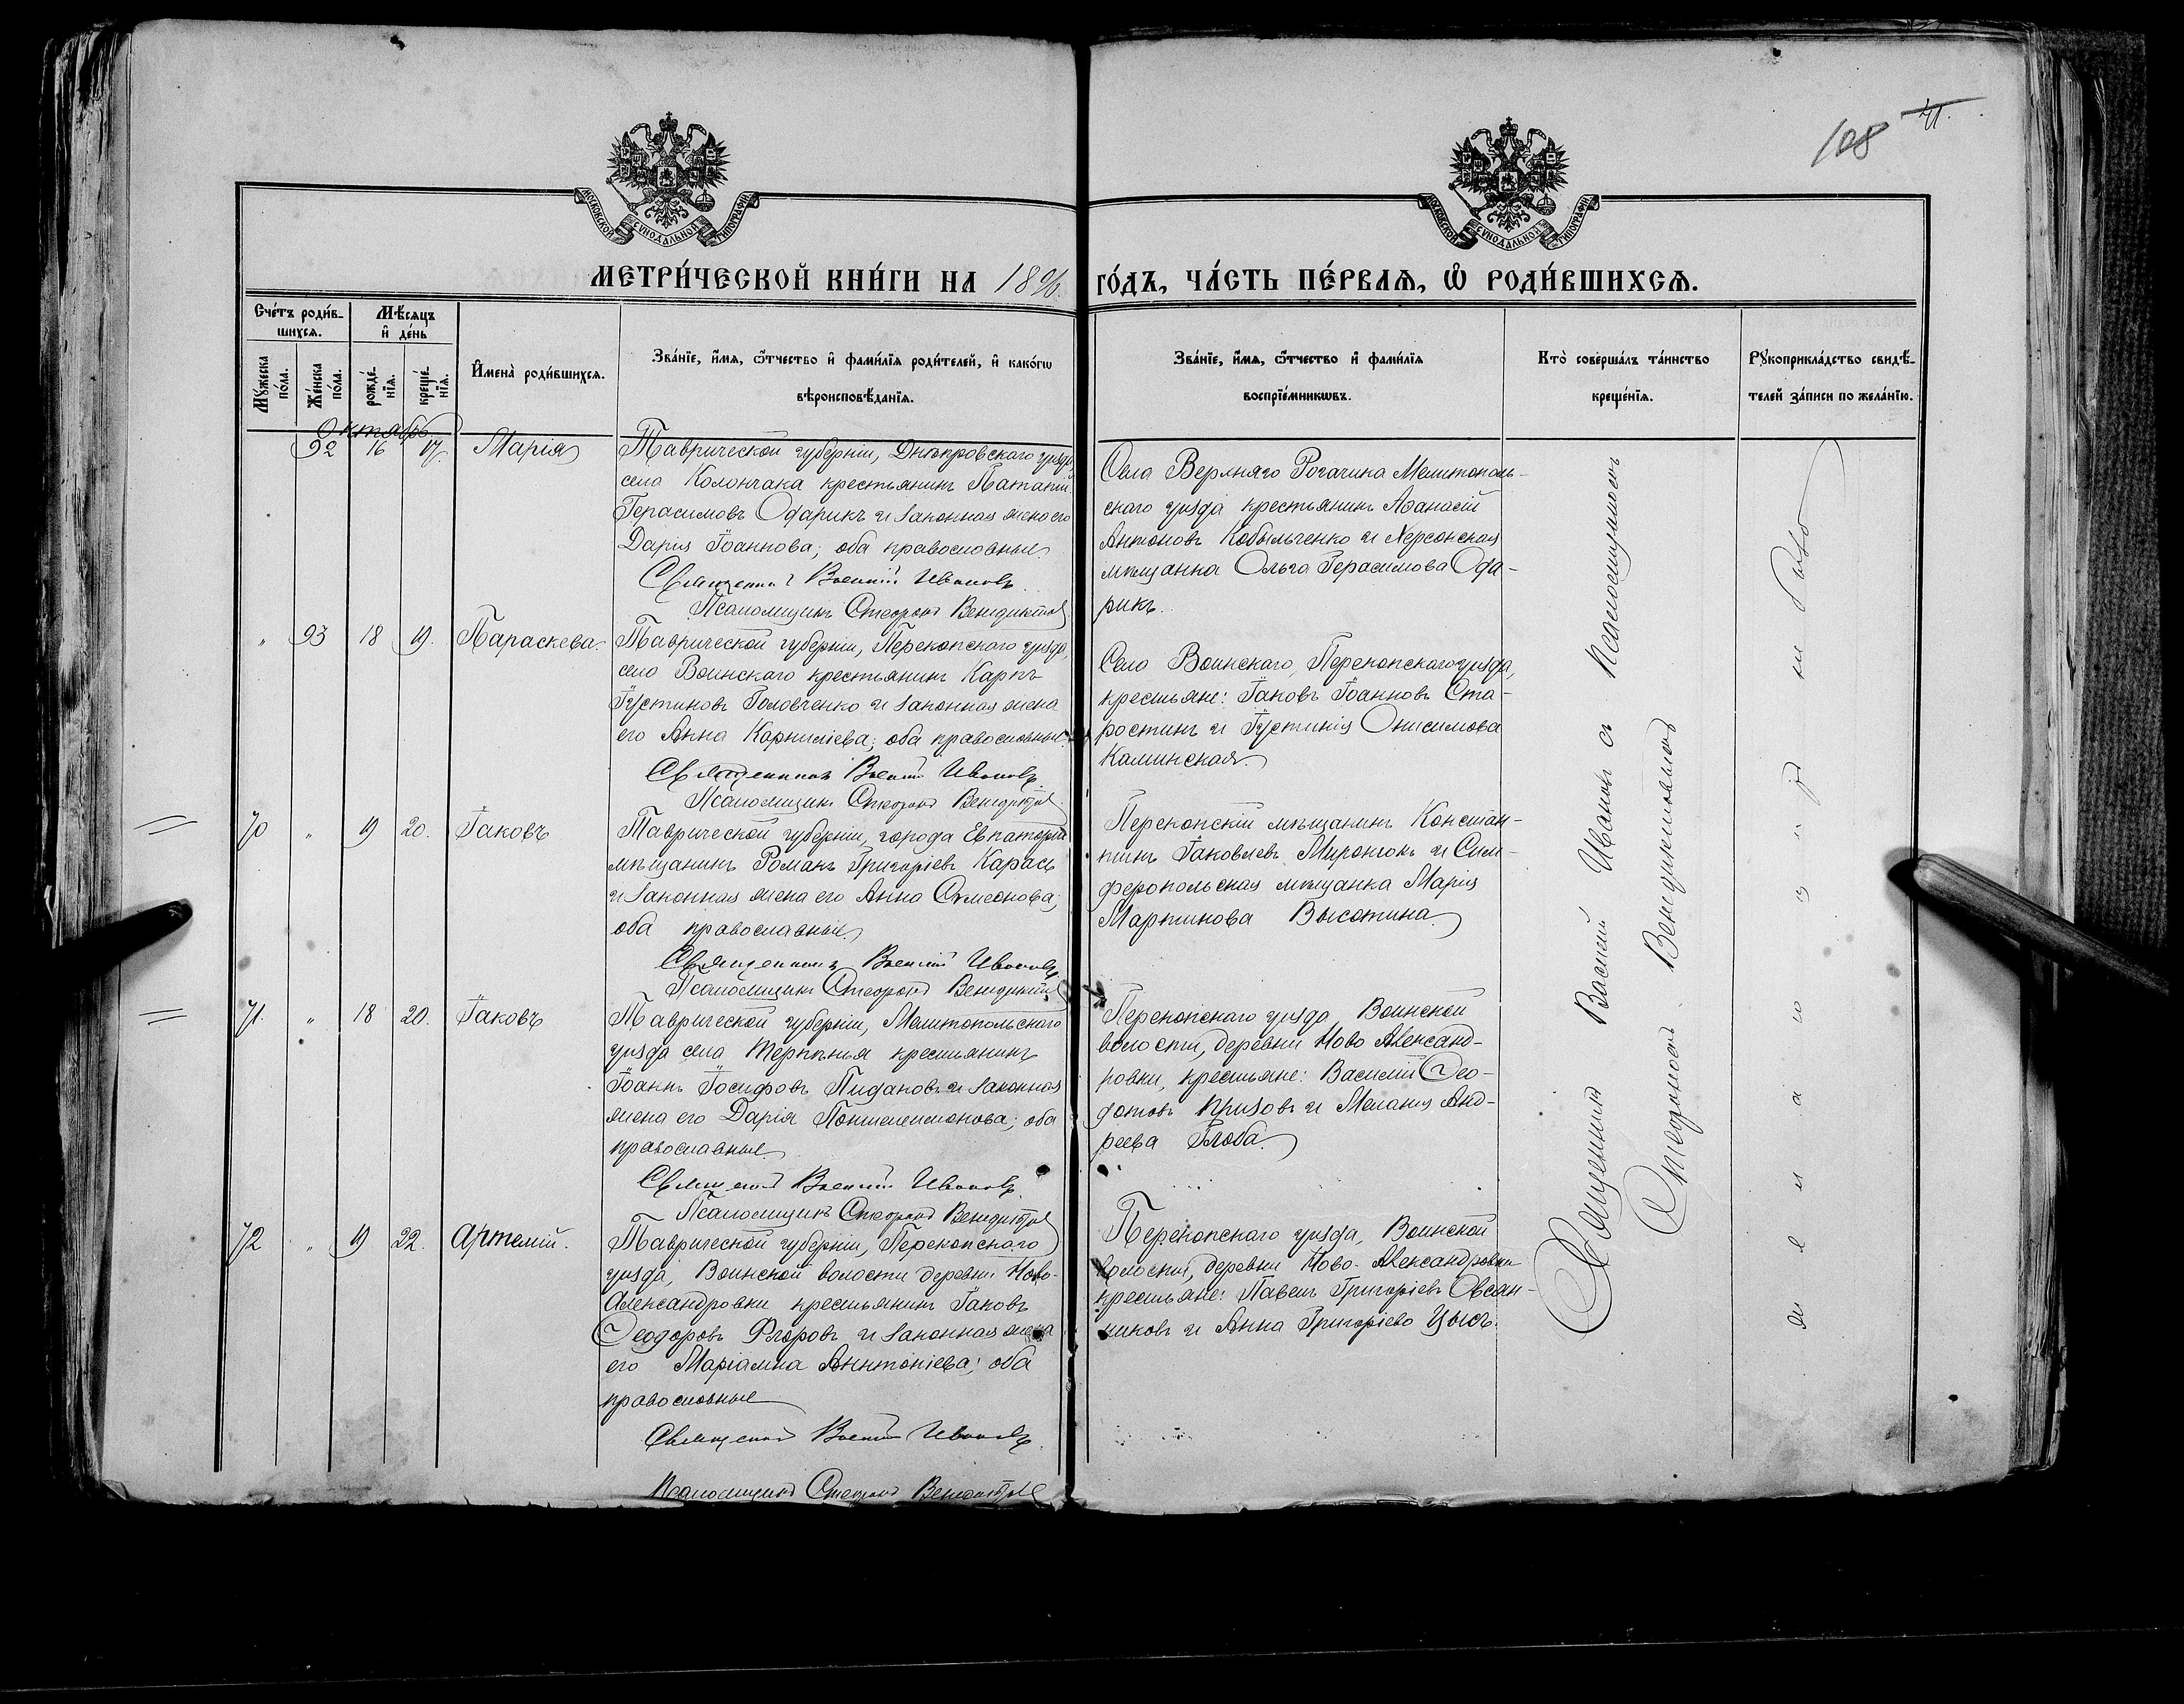 108 71.
МОСКОВСКОЙ СѴНОДАЛЬНОЙ ТИПОГРАФІИ
МОСКОВСКОЙ СѴНОДАЛЬНОЙ ТИПОГРАФІИ
МЕТРИ́ЧЕСКОЙ КНИ́ГИ НА 1896 ГО́ДЪ, ЧА́СТЬ ПЕ́РВАѦ, Ѡ҆ РОДИ́ВШИХСѦ.
Сче́тъ роди́в-
шихсѧ.
Мꙋ́жеска по́ла.
Же́нска по́ла.
Мѣ́сѧцъ
и҆ де́нь
рожде́-
нїѧ.
креще́-
нїѧ.
И҆мена̀ роди́вшихсѧ.
Зва́нїе, и҆́мѧ, ѻ҆́тчество и҆ фами́лїѧ роди́телей, и҆ како́гѡ
вѣроисповѣ́данїѧ.
Зва́нїе, и҆́мѧ, ѻ҆́тчество и҆ фами́лїѧ
воспрїе́мникѡвъ.
Кто̀ соверша́лъ та́инство
креще́нїѧ.
Рꙋкоприкла́дство свидѣ́-
телей за́писи по жела́нїю.
Октябрь
92 16 17. Марія
Таврической губерніи, Днѣпровскаго уѣзда,
села Колончака крестьянинъ Патапій
Герасимовъ Одарикъ и законная жена его
Дарія Іоаннова; оба православные.
Священникъ Василій Ивановъ
Псаломщикъ Спеѳдонт Венедиктов
Села Верхняго Рогачика Мелитополь-
скаго уѣзда крестьянинъ Аѳанасій
Антоновъ Кобыльченко и Херсонская
мѣщанка Ольга Герасимова Ода-
рикъ.
" 93 18 19. Параскева.
Таврической губерніи, Перекопскаго уѣзда,
село Воинскаго крестьянинъ Карпъ
Іустиновъ Головченко и законная жена
его Анна Корниліева; оба православные.
Священникъ Василій Ивановъ
Псаломщикъ Венедиктов
Село Воинскаго, Перекопскаго уѣзда,
крестьяне: Іаковъ Іоанновъ Ста-
ростинъ и Іустинія Онисимова
Каминская.
70 " 19 20. Іаковъ
Таврической губерніи, города Евпаторіи
мѣщанинъ Романъ Григоріевъ Карась
и законная жена его Анна Симеонова;
оба православные.
Священникъ Василій Ивановъ
Псаломщикъ Венедиктов
Перекопскій мѣщанинъ Констан-
тинъ Іаковлевъ Миронюкъ и Сим-
феропольская мѣщанка Марія
Мартинова Высотина.
71. " 18 20. Іаковъ
Таврической губерніи, Мелитопольскаго
уѣзда села Терпѣнья крестьянинъ
Іоаннъ Іосифовъ Пидановъ и законная
жена его Дарія Понтелеимонова; оба
православные.
Священникъ Василій Ивановъ
Псаломщикъ Венедиктов
Перекопскаго уѣзда, Воинской
волости, деревни Ново Александ-
ровки, крестьяне: Василій Ѳео-
дотовъ Призовъ и Меланія Анд-
реева Глоба.
72 " 19 22. Артемій.
Таврической губерніи, Перекопскаго
уѣзда, Воинской волости деревни Ново-
Александровки крестьянинъ Іаковъ
Ѳеодоровъ и законная жена
его Маріамна Антоніева; оба
православные
Священникъ Василій Ивановъ
Псаломщикъ Венедиктов
Перекопскаго уѣзда, Воинской
волости, деревни Ново-Александровки
крестьяне: Павелъ Григоріевъ Овсян-
никовъ и Анна Григоріева Цысь.
Священникъ Василій Ивановъ съ Псаломщикомъ
Венедиктовымъ